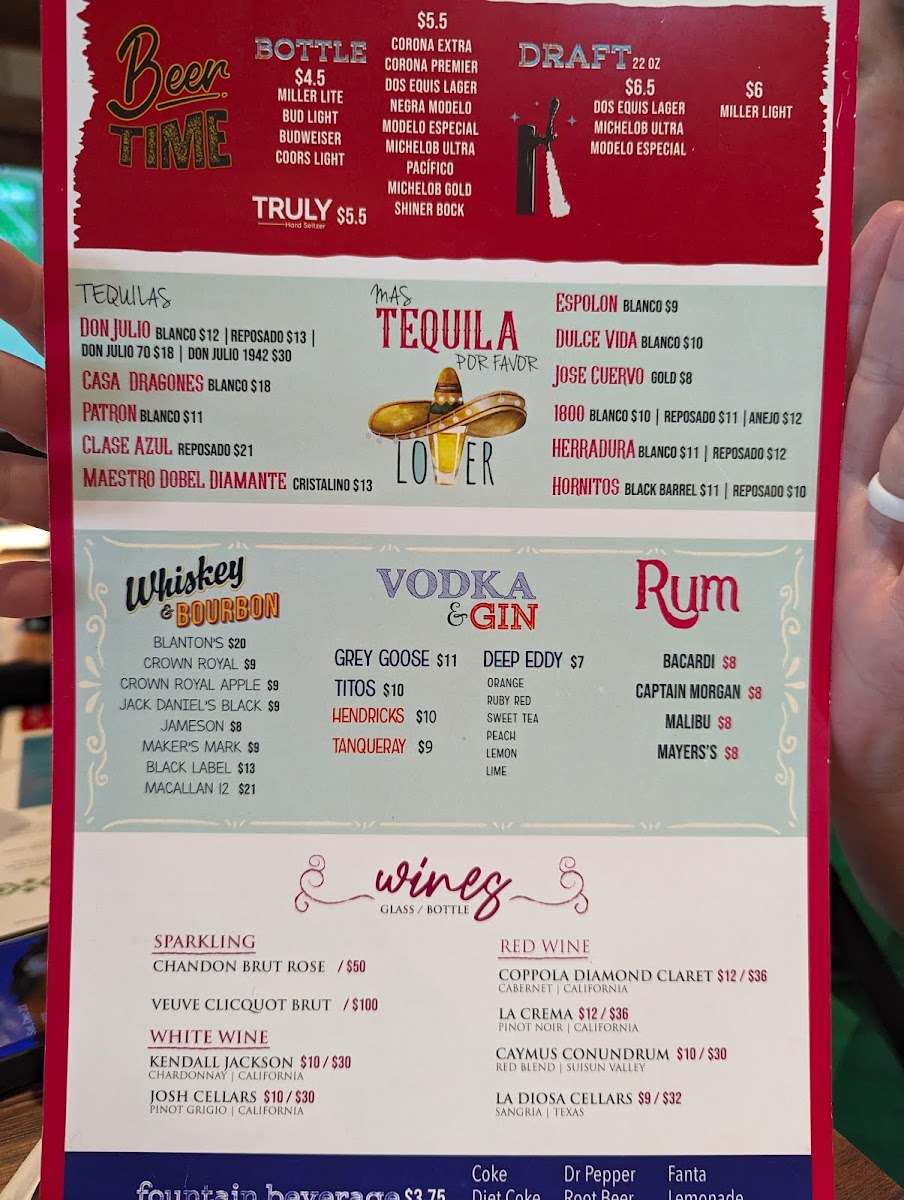 Beer
TIME
BOTTLE
$4.5
MILLER LITE
BUD LIGHT
BUDWEISER
COORS LIGHT
TRULY $5.5
Hard Seltzer
$5.5
CORONA EXTRA
CORONA PREMIER
DOS EQUIS LAGER
NEGRA MODELO
MODELO ESPECIAL
MICHELOB ULTRA
PACÍFICO
MICHELOB GOLD
SHINER BOCK
DRAFT 22 OZ
$6.5
DOS EQUIS LAGER
MICHELOB ULTRA
MODELO ESPECIAL
$6
MILLER LIGHT
TEQUILAS
DON JULIO BLANCO $12 | REPOSADO $13 |
DON JULIO 70 $18 | DON JULIO 1942 $30
CASA DRAGONES BLANCO $18
PATRON BLANCO $11
CLASE AZUL REPOSADO $21
MAESTRO DOBEL DIAMANTE CRISTALINO $13
MAS
TEQUILA
POR FAVOR
LOVER
ESPOLON BLANCO $9
DULCE VIDA BLANCO $10
JOSE CUERVO GOLD $8
1800 BLANCO $10 | REPOSADO $11 | ANEJO $12
HERRADURA BLANCO $11 | REPOSADO $12
HORNITOS BLACK BARREL $11 | REPOSADO $10
Whiskey
& BOURBON
BLANTON'S $20
CROWN ROYAL $9
CROWN ROYAL APPLE $9
JACK DANIEL'S BLACK $9
JAMESON $8
MAKER'S MARK $9
BLACK LABEL $13
MACALLAN 12 $21
VODKA
& GIN
GREY GOOSE $11
TITOS $10
HENDRICKS $10
TANQUERAY $9
DEEP EDDY $7
ORANGE
RUBY RED
SWEET TEA
PEACH
LEMON
LIME
Rum
BACARDI $8
CAPTAIN MORGAN $8
MALIBU $8
MAYERS'S $8
wines
GLASS / BOTTLE
SPARKLING
CHANDON BRUT ROSE / $50
VEUVE CLICQUOT BRUT / $100
WHITE WINE
KENDALL JACKSON $10 / $30
CHARDONNAY | CALIFORNIA
JOSH CELLARS $10 / $30
PINOT GRIGIO | CALIFORNIA
RED WINE
COPPOLA DIAMOND CLARET $12 / $36
CABERNET | CALIFORNIA
LA CREMA $12 / $36
PINOT NOIR | CALIFORNIA
CAYMUS CONUNDRUM $10 / $30
RED BLEND | SUISUN VALLEY
LA DIOSA CELLARS $9 / $32
SANGRIA | TEXAS
fountain beverage $3.75
Coke
Diet Coke
Dr Pepper
Root Beer
Fanta
Lemonade